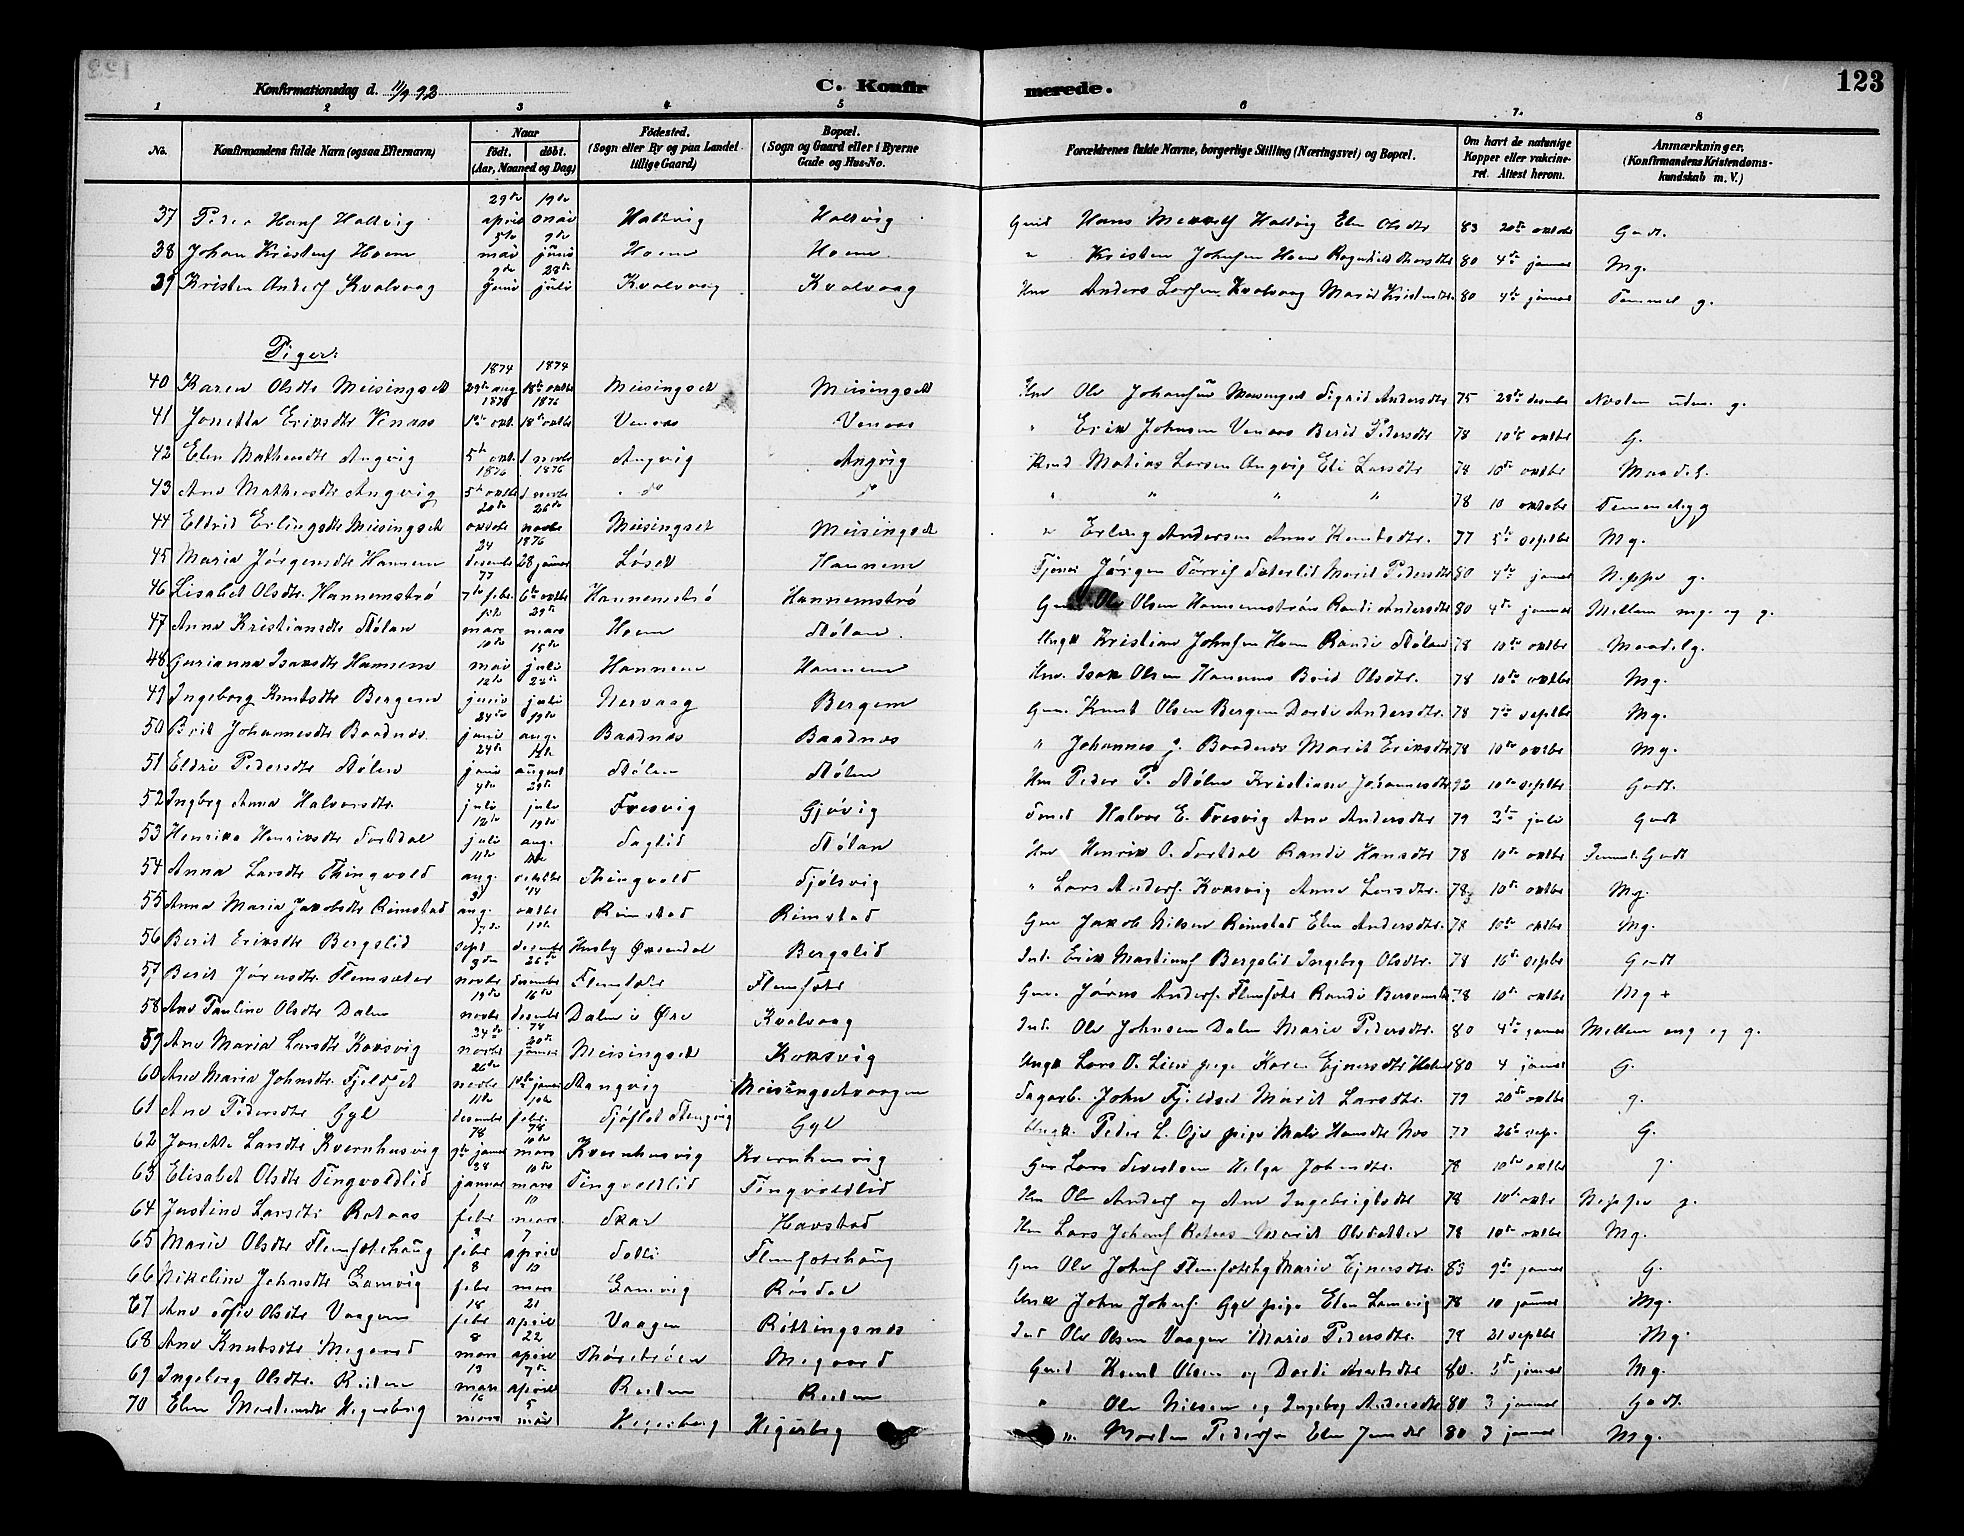 123
Konfirmationsdag d. 11/9 92
C. Konfirmerede.
1 2 3 4 5 6 7. 8
No. Konfirmandens fulde Navn (ogsaa Efternavn) Naar født. døbt. (Aar, Maaned og Dag) Fødested. (Sogn eller By og paa Landet tillige Gaard) Bopæl. (Sogn og Gaard eller i Byerne Gade og Hus-No. Forældrenes fulde Navne, borgerlige Stilling (Næringsvei) og Bopæl. Om havt de naturlige Kopper eller vakcineret. Attest herom. Anmærkninger. (Konfirmandens Kristendomskundskab m. V.)
37 Peder Hansf Holtvig 29de april 19de mai Holtvig Holtvig Hans Holtvig Elen Olsdtr 83 20de oktobr Godt.
38 Johan Kristenf Hoem 5te mai 9de juni Hoem Hoem " Kristen Johnsen Hoem 80 4de januar Mg.
39 Kristen Andersf Kvalvaag 9de juni 28de juli Kvalvaag Kvalvaag Hm Anders Larsen Kvalvaag Marit Kristensdtr 80 4de januar Temmel g.
Piger:
40 Karen Olsdtr Meisingset 1874 29de aug 1874 18de oktbr Meisingset Meisingset Hm Ole Johansen Sigrid Andersdtr 75 28de desembr Næsten uden g.
41 Jonetta Eriksdtr Venaas 1876 1ste okt. 1876 18de oktbr Venaas Venaas " Erik Johnsen Venaas Berit Pedersdtr 78 10de oktbr G.
42 Elen Matheusdtr Angvig 5te okt. 1 novbr Angvig Angvig Matias Larsen Angvig Eli Larsdtr 78 10de oktbr Maadel.
43 Ane Matheusdtr Angvig 1876 5te oktbr 1876 1 novbr do do " " " " 78 10 oktobr
44 Eldrid Erlingsdtr Meisingset 20de oktobr 26de novbr Meisingset Meisingset " Erling Andersen Anne Knutsdtr. 77 5te septbr Mg.
45 Maria Jørgensdtr Hannem 24 desembr 1876 28 januar Løset Hannem Jørgen Marit Pedersdtr 80 4de januar Neppe g.
46 Lisabet Olsdtr. Hannemstrø 77 7de febr. 6te oktbr Hannemstrø Hannemstrø Ole Olsen Hannemstrøen Randi Andersdtr 80 4de januar Mellem mg. og g.
47 Anne Kristiansdtr Stølan mars 29de mars Hoem Stølan. Ungk Kristian Johnsen Hoem Randi Stølan 78 10de oktbr Maadelg.
48 Gurianna Isaksdtr Hannem 10de mai 15de juli Hannem Hannem Hm. Isak Olsen Hannem Brit Olsdtr. 78 10de oktbr Mg.
49 Ingeborg Knutsdtr Bergem 12te juni 24de juli Nervaag Bergem Gm. Knut Olsen Bergem Dordi Andersdtr. 78 7de septbr Mg.
50 Brit Johannesdtr Baadnes. 24de juni 19de aug. Baadnes Baadnes " Johannes J. Baadnes Marit Eriksdtr 78 10de oktbr Mg.
51 Eldri Pedersdtr Stølen 24de juni august Stølan Stølan Hm Peder P. Stølen Kristiane Johannesdtr 92 10de septbr Godt.
52 Ingbrg Anna Halvorsdtr. 4de juli 29de juli Fresvig Gjøvig Halvor E. Fresvig Ane Andersdtr 79 3de juli Godt
53 Henrika Henriksdtr Sortdal 12te juli 19de aug. Saglid Stølan Hm Henrik O. Sortdal Randi Hansdtr 78 10de oktbr Godt
54 Anna Larsdtr Thingvold 11te aug. Thingvold Sjølsvig " Lars Andersf. Korsvig Anne Larsdtr. 78 10de oktbr Mg
55 Anna Maria Jakobsdtr Rimstad aug. oktbr Rimstad Rimstad Gm Jakob Nilsen Rimstad Elen Andersdtr. 78 10de oktbr Mg.
56 Berit Eriksdtr Bergslid sept 1ste desembr Husby Øksendal Bergslid Ind. Erik Martinusf Bergslid Ingebrg Olsdtr. 78 16de septbr Godt
57 Berit Jørnsdtr. Flemsæter 9de novbr 26de desembr Flemsæter Flemsæter Gm. Jørn Andersf. Flemsæter Randi 78 10de oktbr Mg +
58 Ane Pauline Olsdtr Dalen 19de novbr 16de desembr Dalen i Øre Kvalvaag Ind. Ole Johnsen Dalen Marie Pedersdtr. 80 4de januar Mellem mg og g.
59 Ane Maria Larsdtr Korsvig 24de novbr 78 20de januar Meisingset Korsvig Ungk Lars O. pige Karen Ejnersdtr 80 4 januar G.
60 Ane Maria Johnsdtr. Fjeldset 26de novbr 10de januar Stangvig Meisingsetvaagen Dagarb. John Fjeldset Marit Larsdtr. 79 20de oktbr g.
61 Ane Pedersdtr Gyl 11te desembr 1ste febr. Gyl Ungk. Peder L. pige Mali Hansdtr 77 26de sep. G.
62 Jonette Larsdtr Kvernhusvig 78 9de januar 78 10de mars Kvernhusvig Kvernhusvig Gm Lars Sivertsen Helga Johnsdtr. 78 10de oktbr g.
63 Elisabet Olsdtr Tingvoldlid 28 januar 10de mars Tingvoldlid Tingvoldlid Hm Ole Andersf og Ane Ingebrigtsdtr 78 10de oktbr Neppe g.
64 Justine Larsdtr Rotaas 1 febr 10 mars. Skar Havstad Hm Lars Johnsf Rotaas Marit Olsdatter 78 10de oktbr Mg.
65 Marie Olsdtr Flemsæterhaug 2 febr 7 april Solli Flemsæterhaug Gm Ole Johnsf Marie Ejnersdtr. 83 9de januar G.
66 Nikeline Johnsdtr Gamvig 8 febr 10 mars Gamvig Røsdal Ungk John Johnsf. Gyl pige Elen 78 10 januar Mg.
67 Ane Sofie Olsdtr Vaagen 18 febr 21 april Vaagen Røttingsnes Ind Ole Olsen Vaagen Marie Pedersdtr. 79 21 septbr Mg.
68 Ane Knutsdtr Megaard 8 mars 22 april Megaard Gmd Knut Olsen og Dordi 80. 5te januar Mg.
69 Ingeborg Olsdtr. Reiten 13 mars 7de april Reiten Reiten " Ole Nilsen og Ingebrg Andersdtr 80 3 januar Godt.
70 Elen Mortensdtr Hegerberg 16 mars 5 mai Hegerberg Hegerberg " Morten Pedersen Elen 80 3 januar Mg.